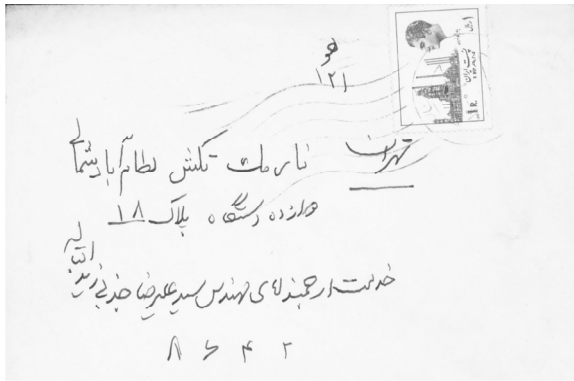 هو
۱۲۱
تهران نارمک تکش نظام آباد شمالی
دوازده دستگاه پلاک ۱۸
خدمت ارجمند آقای مهندس سید علیرضا جذبی زید
۸ ۶ ۴ ۲
پست ایران
R. ۱